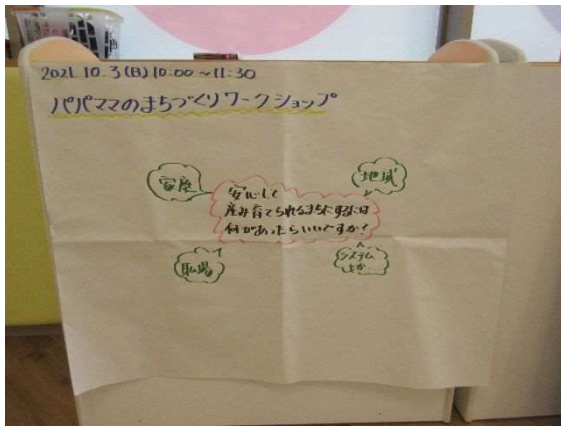 2021. 10. 3(日)10:00～11:30
パパママのまちづくりワークショップ
家庭
地域
安心して
産み育てられるまちにするには
何があったらいいですか？
職場
システム
とか…